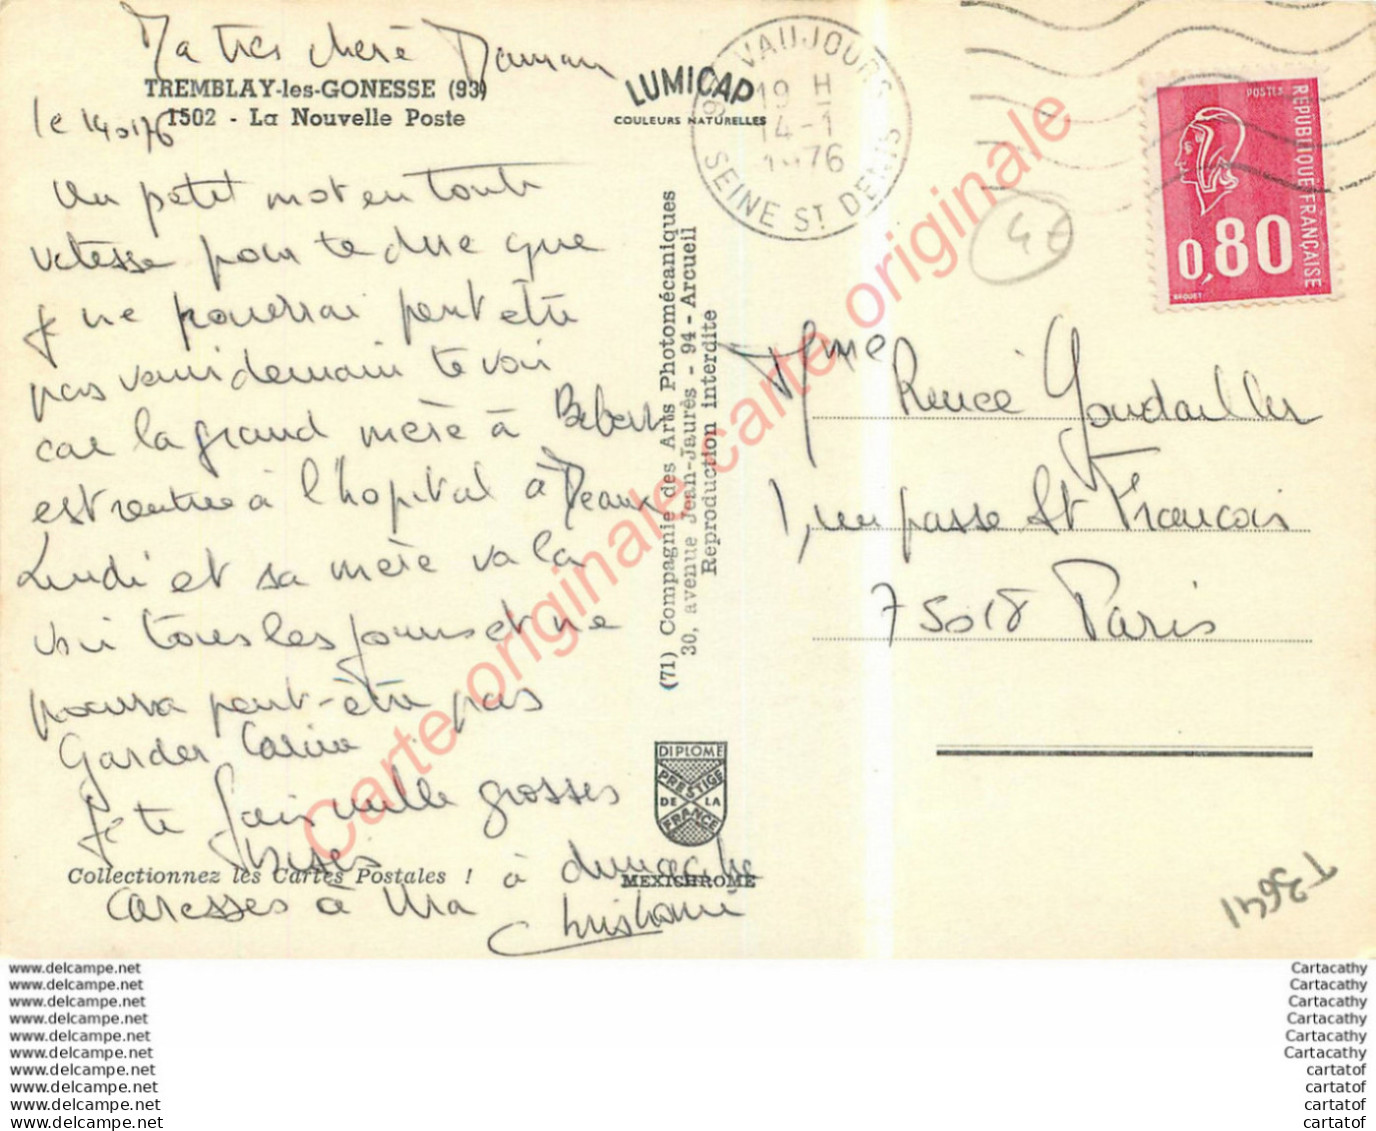 Ma très chère Maman
TREMBLAY-les-GONESSE (93)
1502 - La Nouvelle Poste
le 14 01 76
Un petit mot en toute
vitesse pour te dire que
je ne pourrai peut être
pas venir demain te voir
car la grand mère à Bebert
est rentrée à l'hopital à Meaux
Lundi et sa mère va la
voir tous les jours et ne
pourra peut-être pas
Garder Carine
Je te fais mille grosses
bises
à dimanche
Caresses à Ura
Christiane
Collectionnez les Cartes Postales !
LUMICAP
COULEURS NATURELLES
(71) Compagnie des Arts Photomécaniques
30, avenue Jean-Jaurès - 94 - Arcueil
Reproduction interdite
DIPLOME
PRESTIGE
DE LA
FRANCE
MEXICHROME
93 VAUJOURS
19 H
14-1
1976
SEINE ST DENIS
POSTES
REPUBLIQUE FRANÇAISE
0,80
BEQUET
4€
Mme Renée Goudailler
1, impasse St François
75018 Paris
T 3641
Carte originale carte originale
www.delcampe.net
www.delcampe.net
www.delcampe.net
www.delcampe.net
www.delcampe.net
www.delcampe.net
www.delcampe.net
www.delcampe.net
www.delcampe.net
www.delcampe.net
Cartacathy
Cartacathy
Cartacathy
Cartacathy
Cartacathy
Cartacathy
cartatof
cartatof
cartatof
cartatof